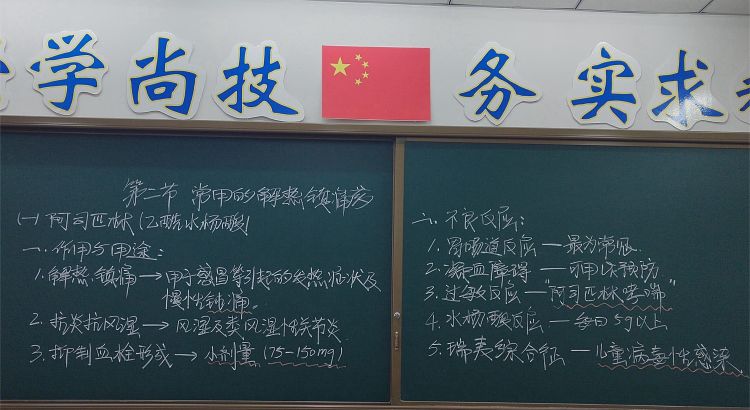 学尚技
务实求
第二节 常用的解热镇痛药
(一) 阿司匹林(乙酰水杨酸)
一.作用与用途:
1.解热.镇痛→用于感冒等引起的发热症状及
慢性钝痛。
2.抗炎抗风湿→风湿及类风湿性关节炎
3.抑制血栓形成→小剂量(75-150mg)
二.不良反应:
1.胃肠道反应—最为常见.
2.凝血障碍—可用VK预防
3.过敏反应—"阿司匹林哮喘"
4.水杨酸反应—每日5g以上
5.瑞夷综合征—儿童病毒性感染